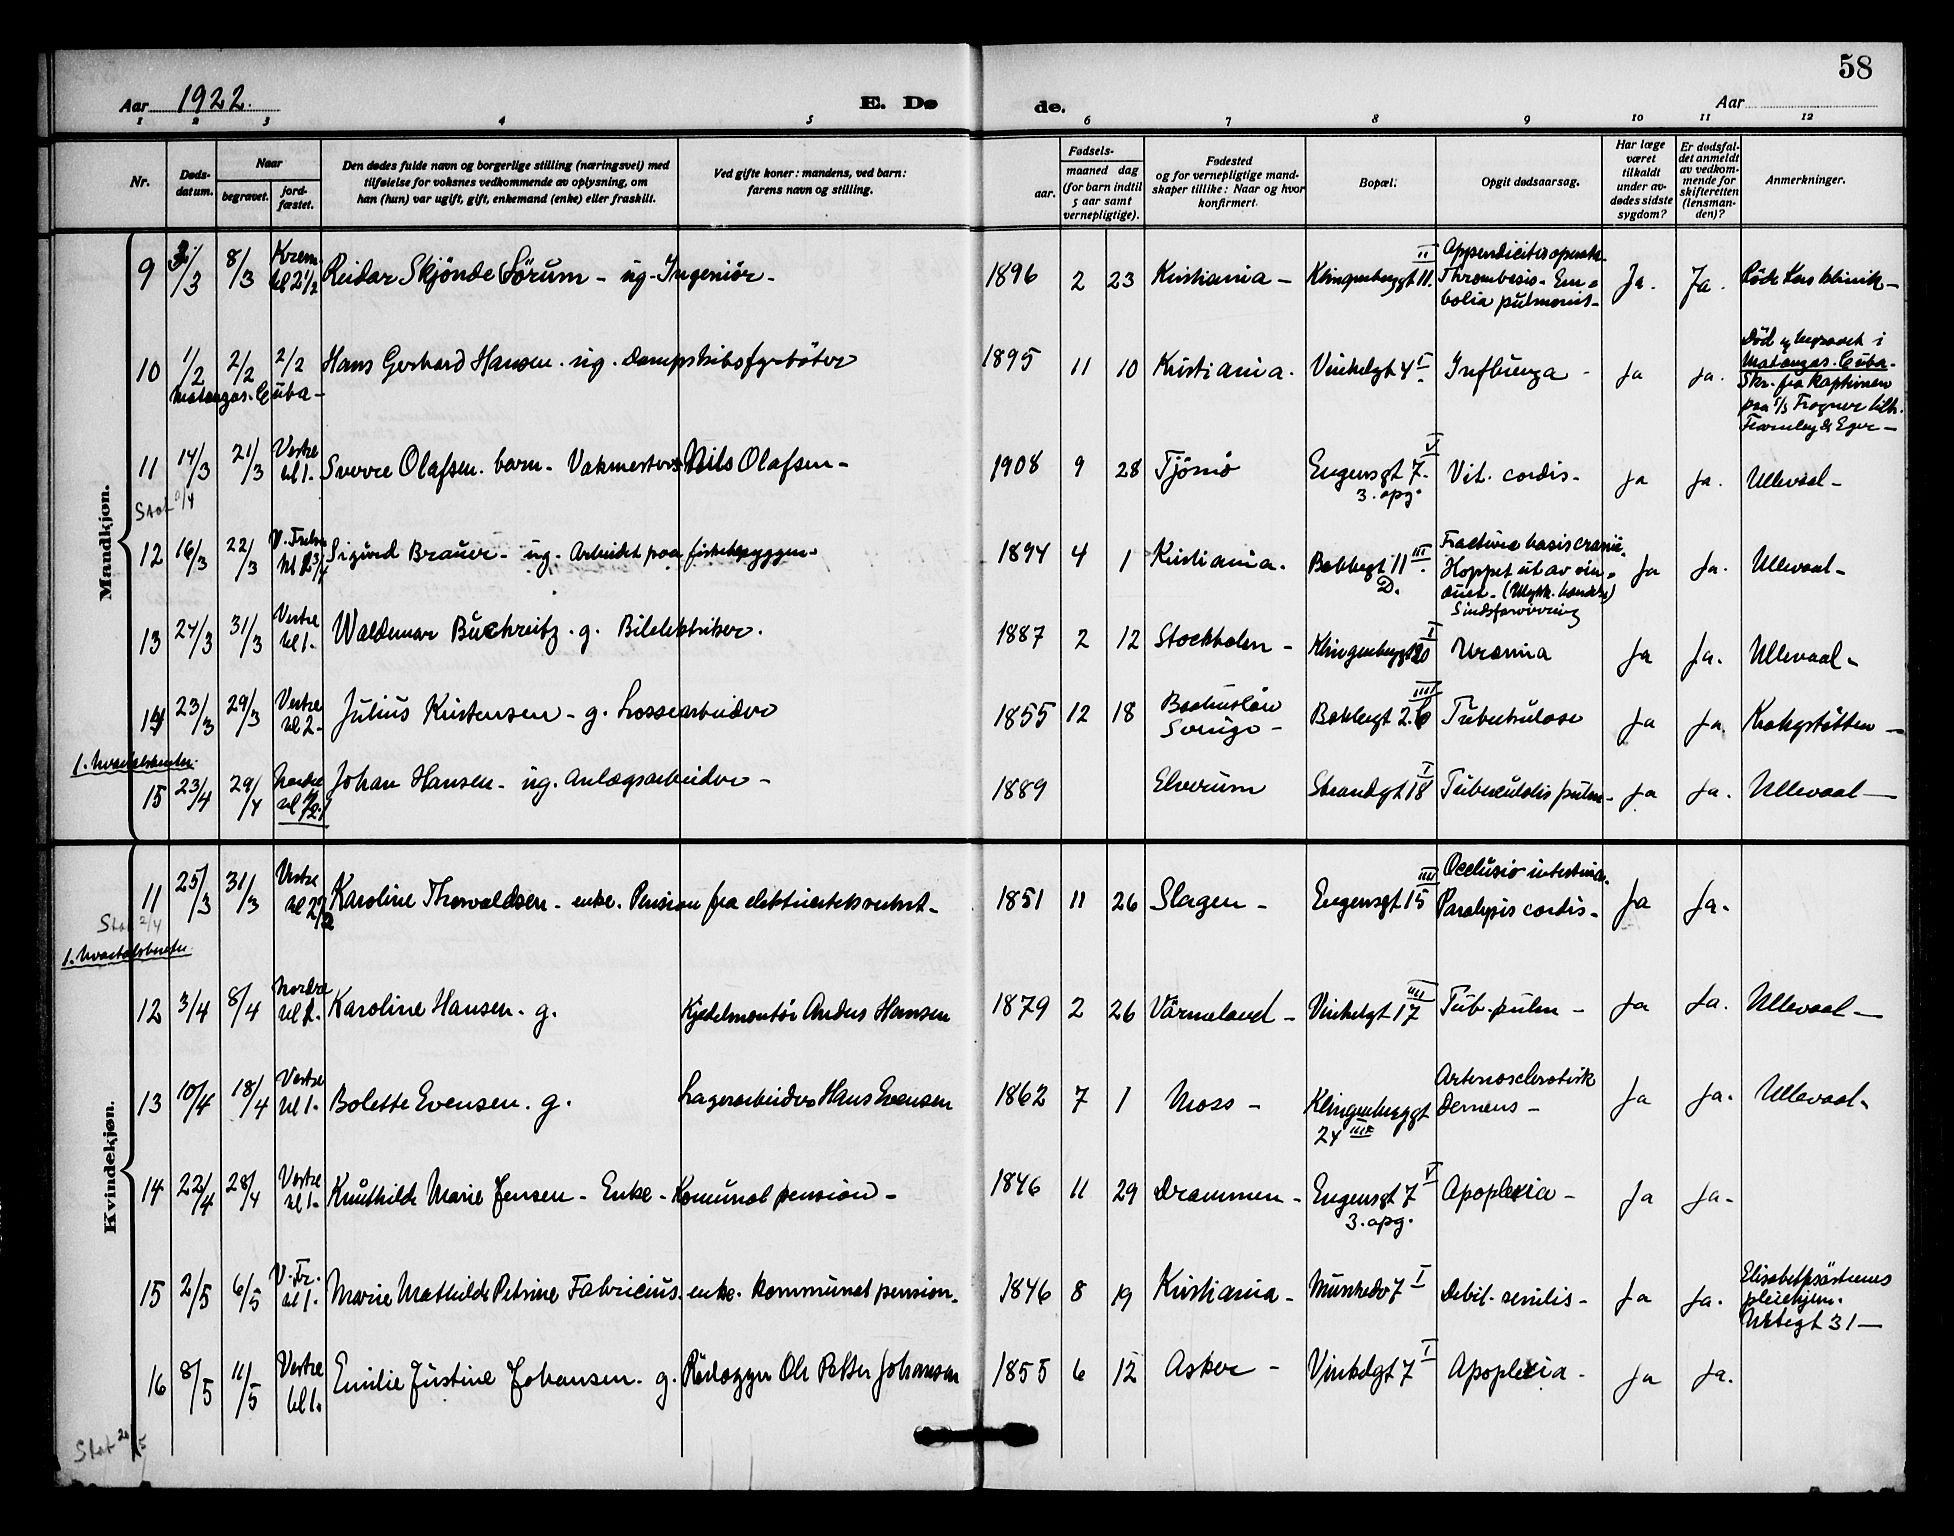 58
Aar 1922.
E. Dø
de.
Aar
1 2 3 4 5 6 7 8 9 10 11 12
Nr.
Døds-
datum.
Naar
begravet.
jord-
fæstet.
Den dødes fulde navn og borgerlige stilling (næringsvei) med
tilføielse for voksnes vedkommende av oplysning, om
han (hun) var ugift, gift, enkemand (enke) eller fraskilt.
Ved gifte koner: mandens, ved barn:
farens navn og stilling.
Fødsels-
aar.
maaned dag
(for barn indtil
5 aar samt
vernepligtige).
Fødested
og for vernepligtige mand-
skaper tillike: Naar og hvor
konfirmert.
Bopæl.
Opgit dødsaarsag.
Har læge
været
tilkaldt
under av-
dødes sidste
sygdom?
Er dødsfal-
det anmeldt
av vedkom-
mende for
skifteretten
(lensman-
den)?
Anmerkninger.
Mandkjøn.
9 /3 8/3 Krem. kl 2 1/2 Reidar Skjönde Sörum - ug. Ingeniör - 1896 2 23 Kristiania - Klingenberggt 11. II Appendicitis operata
Thrombosis - Em-
bolia pulmonis - Ja. Ja. Röde Kors klinik -
10 1/2 2/2 2/2 Hans Gerhard Hansen. ug. Dampskibsfyrböter 1895 11 10 Kristiania. Vinkelgt 4 I. Influenza - Ja Ja.
Matanzas. Cuba -
Död og begravet i
Matanzas. Cuba.
Skr. fra kaptinen
paa S/S Frogner tilh.
Fearnley & Eger -
11 14/3 21/3 Vestre kl 1. Sverre Olafsen. barn - Vakmester Nils Olafsen - 1908 9 28 Tjömö Engensgt 7. V
3. opg. Vit. cordis - Ja Ja. Ullevaal -
Stat /4
12 16/3 22/3 V. Frelse kl 2 3/4 Sigurd Brauer - ug. Arbeidet paa fiskebryggen - 1894 4 1 Kristiania. Bakkegt 11 III.
D. Fractura basis cranii.
Hoppet ut av vin-
duet - (Ulykk. hændelse)
Sindsforvirring Ja Ja. Ullevaal -
13 24/3 31/3 Vestre kl 1. Waldemar Buchreitz. g. Bilelektriker. 1887 2 12 Stockholm - Klingenberggt 20 I Uræmia Ja Ja. Ullevaal -
14 23/3 29/3 Vestre kl 2. Julius Kristensen - g. Lossearbeider 1855 12 18 Baahuslän
Sverige - Bakkegt 2.b IIII Tuberkulose Ja Ja. Krohgstötten -
1. kvartalsbrev
15 23/4 29/4 Nordre kl 1/2 1 Johan Hansen - ug. Anlægsarbeider - 1889 Elverum Strandgt 18 I Tuberculosis pulm - Ja Ja. Ullevaal -
Kvindekjøn.
11 25/3 31/3 Vestre kl 2 1/2 Karoline Thorvaldsen - enke. Pension fra elektricitetsverket - 1851 11 26 Slagen - Engensgt 15 III Occlusio intestinal.
Paralysis cordis - Ja Ja.
Stat 2/4
12 3/4 8/4 Nordre kl 1. Karoline Hansen. g. Kjedelmontör Anders Hansen 1879 2 26 Värmeland - Vinkelgt 17 III Tub. pulm - Ja Ja. Ullevaal -
13 10/4 18/4 Vestre kl 1. Bolette Evensen. g. Lagerarbeider Hans Evensen 1862 7 1 Moss - Klingenberggt
24 III Arteriosclerotisk
Demens - Ja Ja. Ullevaal -
14 22/4 28/4 Vestre kl 1. Knuthilde Marie Jensen - Enke - Komunal pension - 1846 11 29 Drammen - Engensgt 7 V
3. opg. Apoplexia - Ja Ja.
15 2/5 6/5 V. Fr. kl 1. Marie Mathilde Petrine Fabricius. enke. kommunel pension. 1846 8 19 Kristiania - Munkedv 7 I Debil. senilis - Ja Ja. Elisabethsöstrenes
pleiehjem.
31 -
16 8/5 11/5 Vestre kl 1. Emilie Justine Johansen. g. Ole Petter Johansen 1855 6 12 Asker - Vinkelgt 7 I Apoplexia - Ja Ja.
Stat 20/5